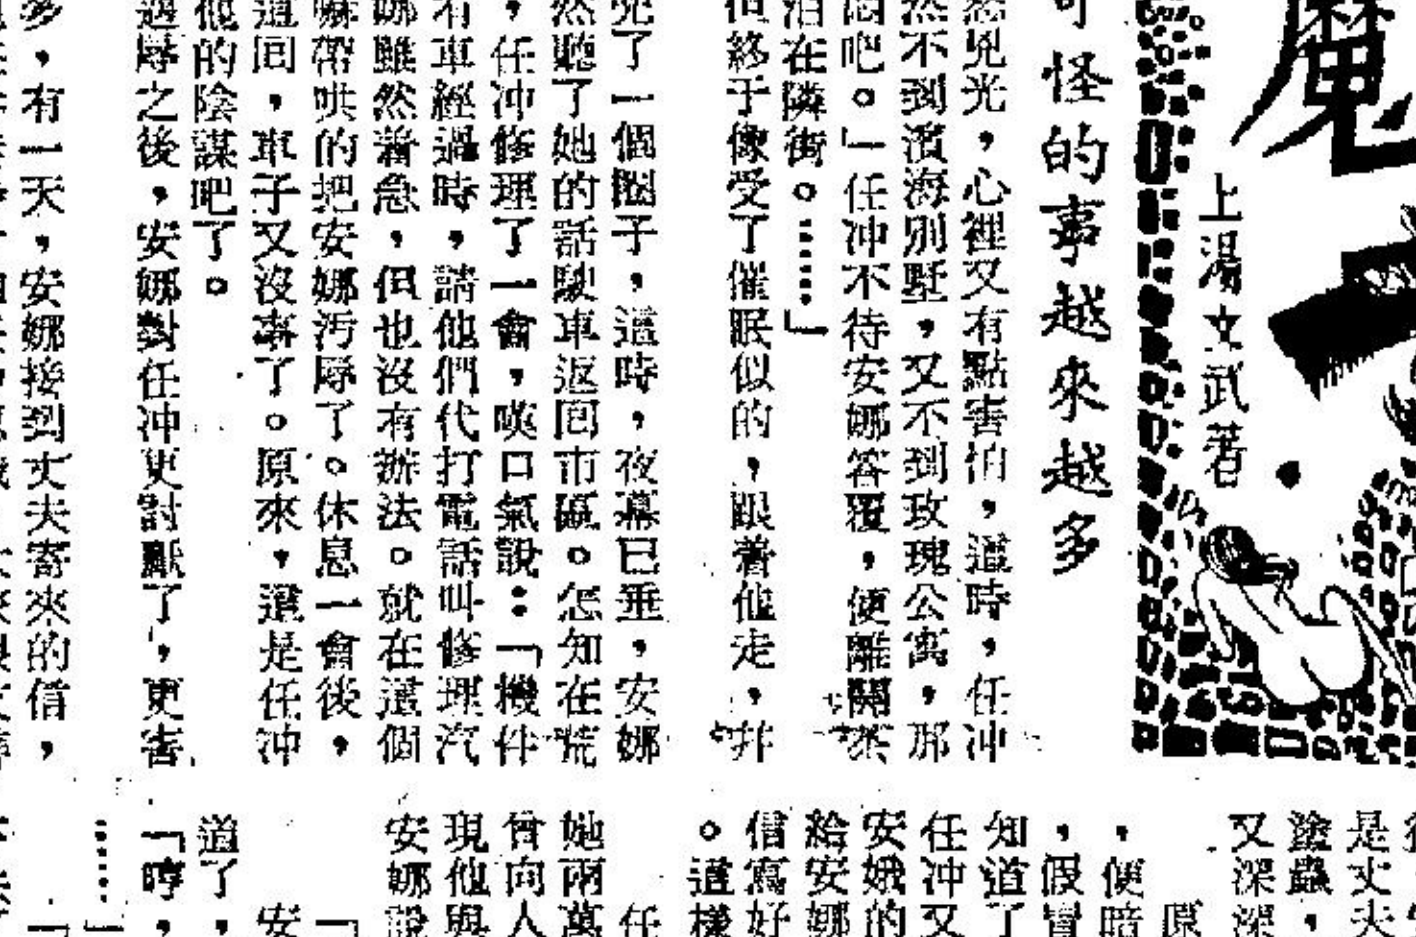 魔
上湯文武著
可怪的事越來越多
兇光，心裡又有點害怕，這時，任冲
然不到濱海別墅，又不到玫瑰公寓，那
吧。」任冲不待安娜答覆，便離開茶
泊在隣街。……」
但終于像受了催眠似的，跟着他走，并
兜了一個圈子，這時，夜幕已垂，安娜
然聽了她的話駛車返囘市區。怎知在荒
，任冲修理了一會，嘆口氣說：「機件
有車經過時，請他們代打電話叫修理汽
娜雖然着急，但也沒有辦法。就在這個
嘛帶哄的把安娜污辱了。休息一會後，
道囘，車子又沒事了。原來，還是任冲
他的陰謀吧了。
遇辱之後，安娜對任冲更討厭了，更害
多，有一天，安娜接到丈夫寄來的信，
是丈夫
塗蟲，
又深深
原
，便暗
，假冒
知道了
任冲又
安娥的
給安娜
信寫好
。這樣
任
她兩萬
曾向人
現他與
安娜說
「
安
道了，
「哼，
……」
「